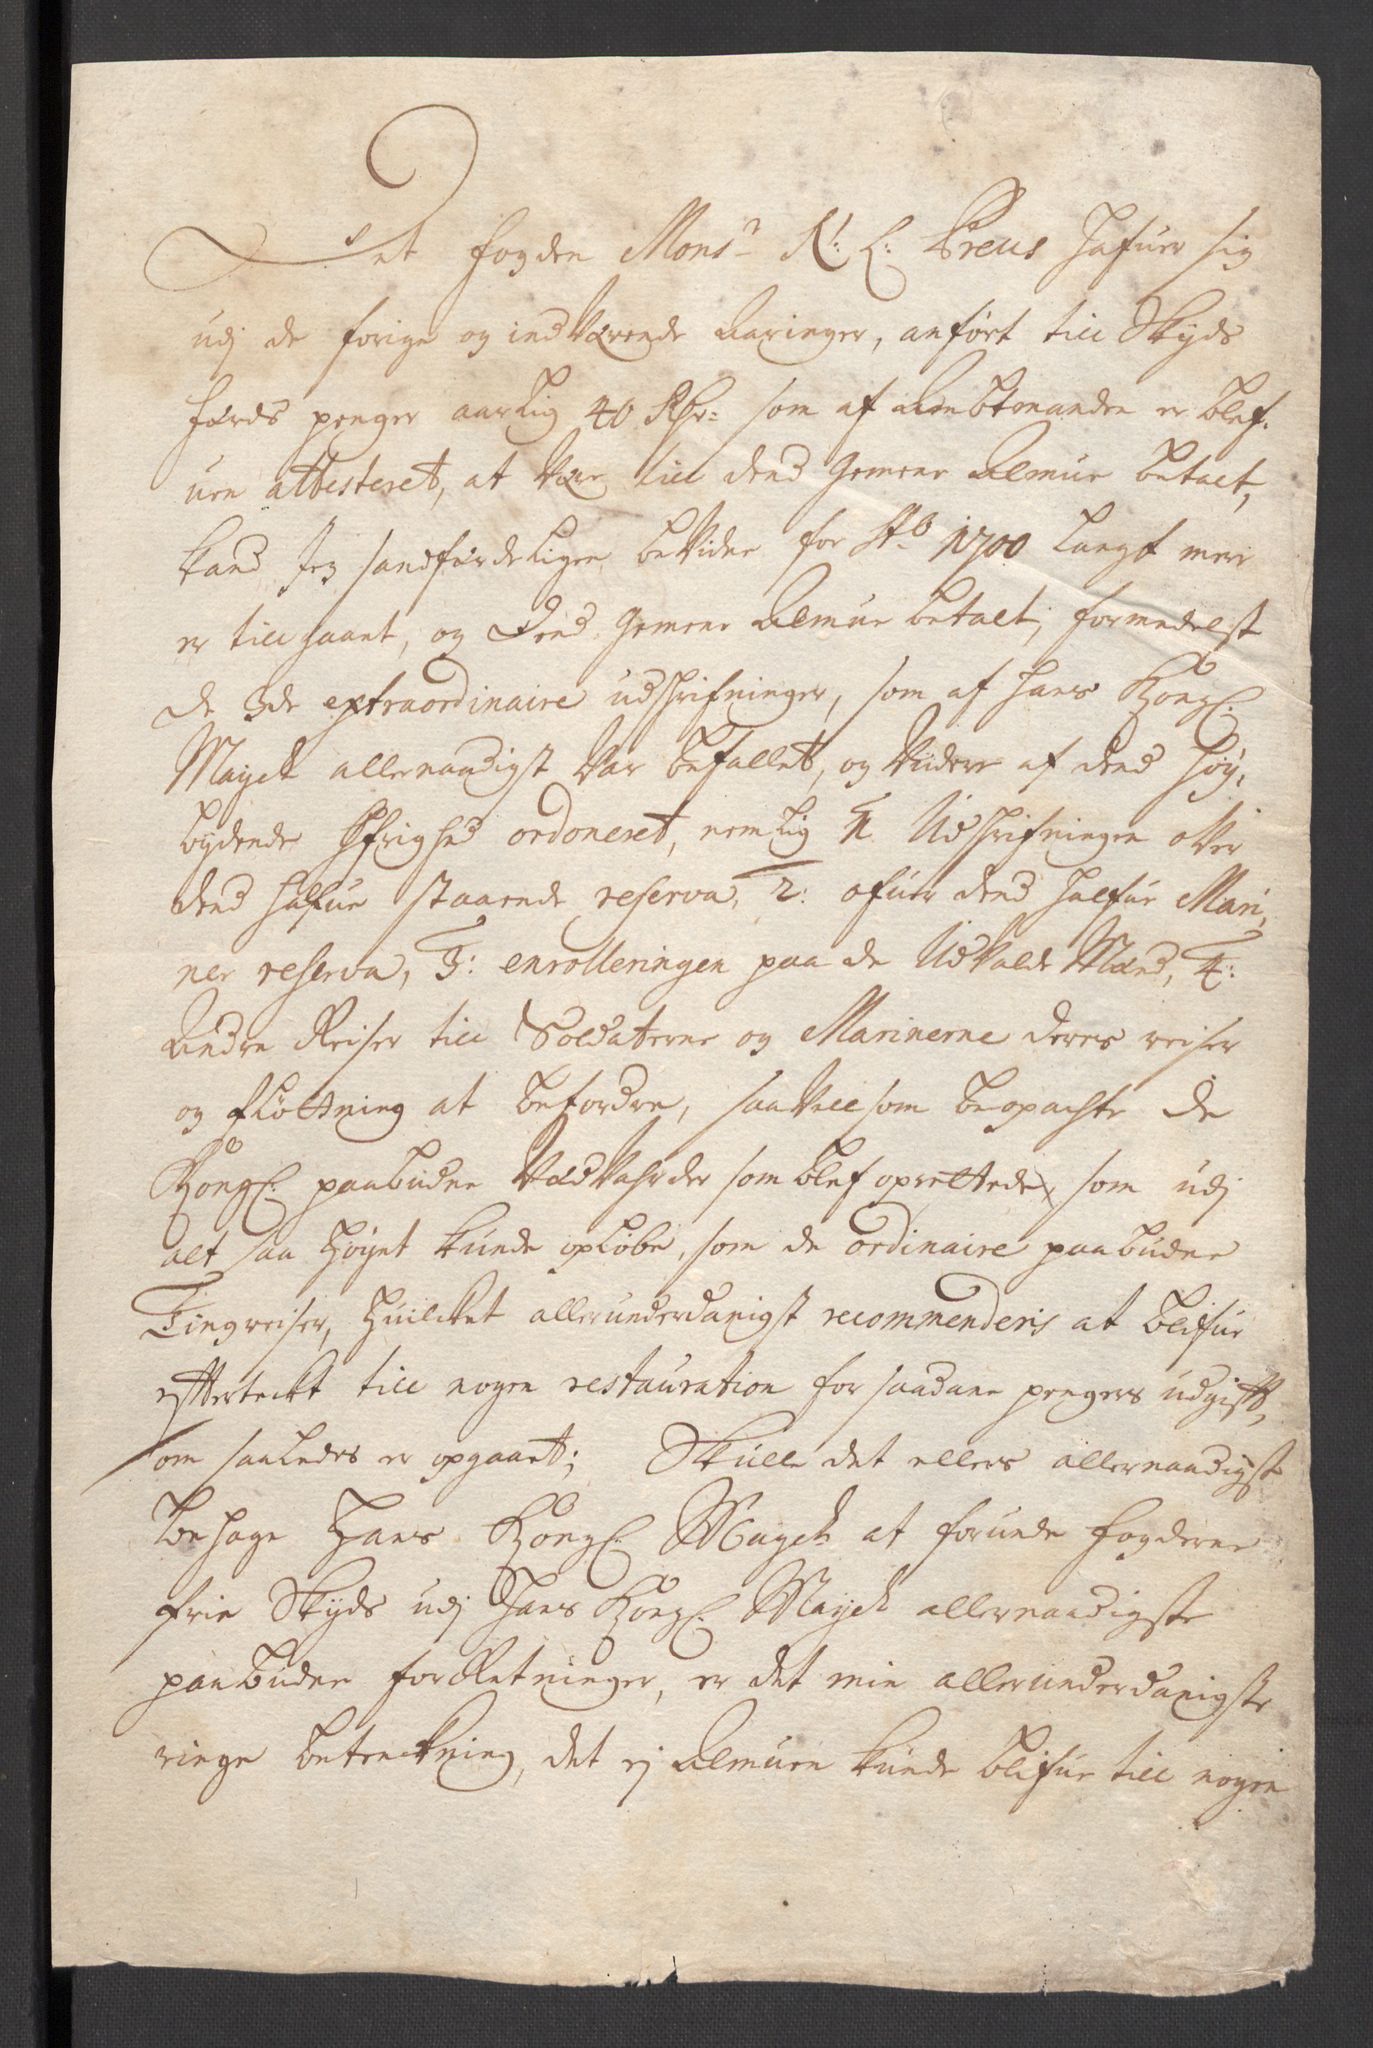 Det fogden Mons:r N: L: Preus hafuer sig
udj de forige og indVærende Aaringer, anført till Skyds
færds penger aarlig 40 Rdr: som af Ambtmanden er blef-
uen attesteret, at Vær till dend gemene Almue betalt,
kand Jeg sandfærdeligen beVidne for Ao 1700 langt mere
er till gaaet, og Dend gemene Almue betalt, formedelst
de 3de extraordinaire udschrifninger, som af hans Kongl:
Maystt allernaadigst Var befallet, og Videre af dend høy-
bydende Øfrighed ordoneret, nemlig 1: Udschrifningen ofver
dend halfue staaende reserva, 2: ofuer dend halfue Mari,
ner reserva, 3: enrolleringen paa de UdValde Mænd, 4:
Andre Reiser till Soldaterne og Marinerne deres reiser
og fløttning at befordre, saaVell som beopachte de
Kongl: paabudne VædVahrder som blef oprettede, som udj
alt saa høyet kunde opløbe, som de ordinaire paabudne
Tingreiser, huilcket allerunderdanigst recommenderis at blifue
efftertenckt till nogen restauration for saadane pengers udgifft,
som saaledes er opgaaet; Skulle det ellers allernaadigst
behage Hans Kongl: Maystt at forunde fogderne
frie Skyds udj Hans Kongl: Maystt allernaadigste
paabudne forRetninger, er det min allerunderdanigste
ringe betenckning, det ej Almuen kunde blifue till nogen